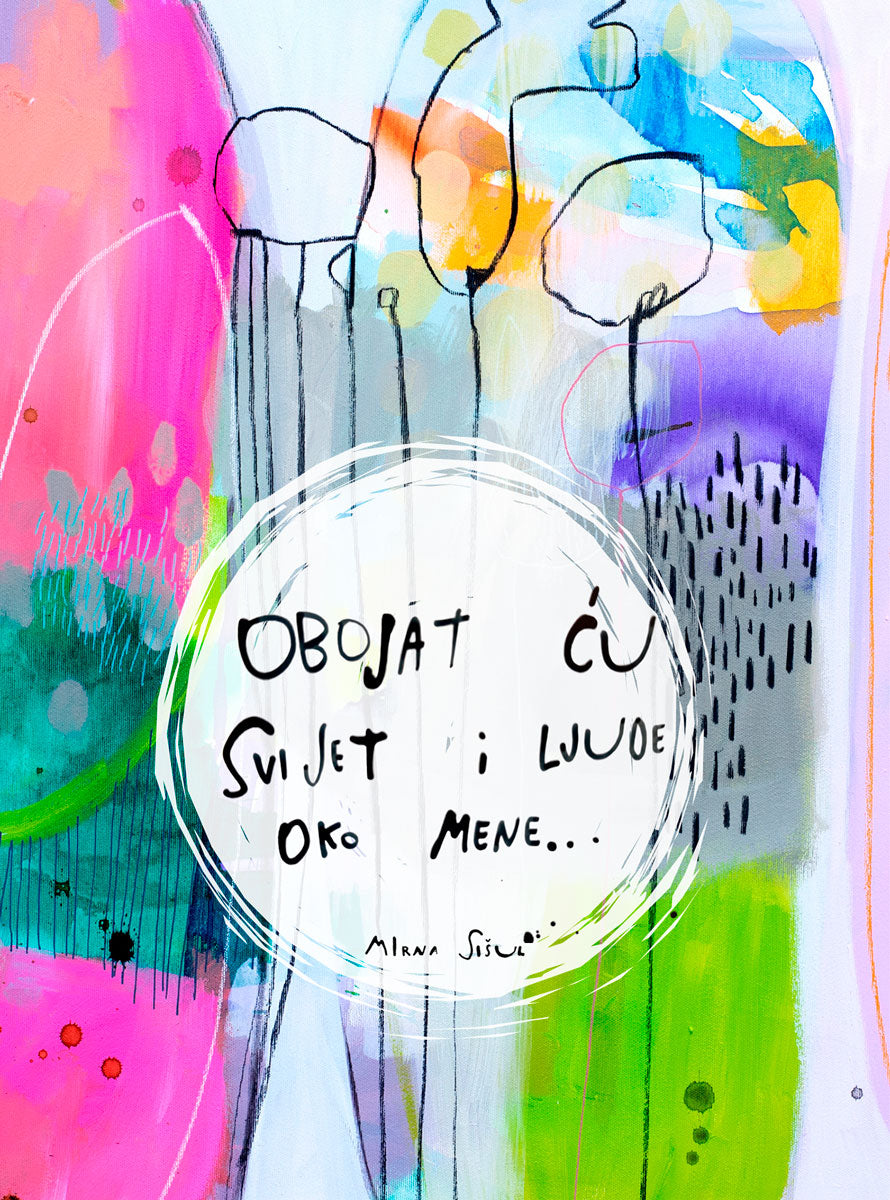 OBOJAT ĆU
SVIJET i LJUDE
OKO MENE...
MIRNA SIŠUL